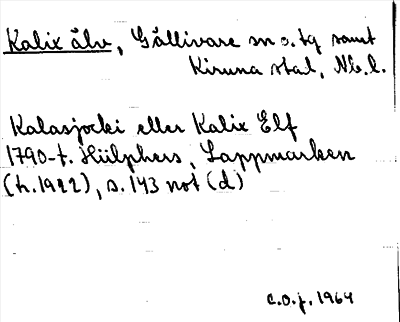 Kalix älv, Gällivare sn o. tg samt
Kiruna stad, Nb.l.
Kalasjocki eller Kalix Elf
1790-t. Hülphers, Lappmarken
(h. 1922), s. 143 not (d)
C.O.J. 1964